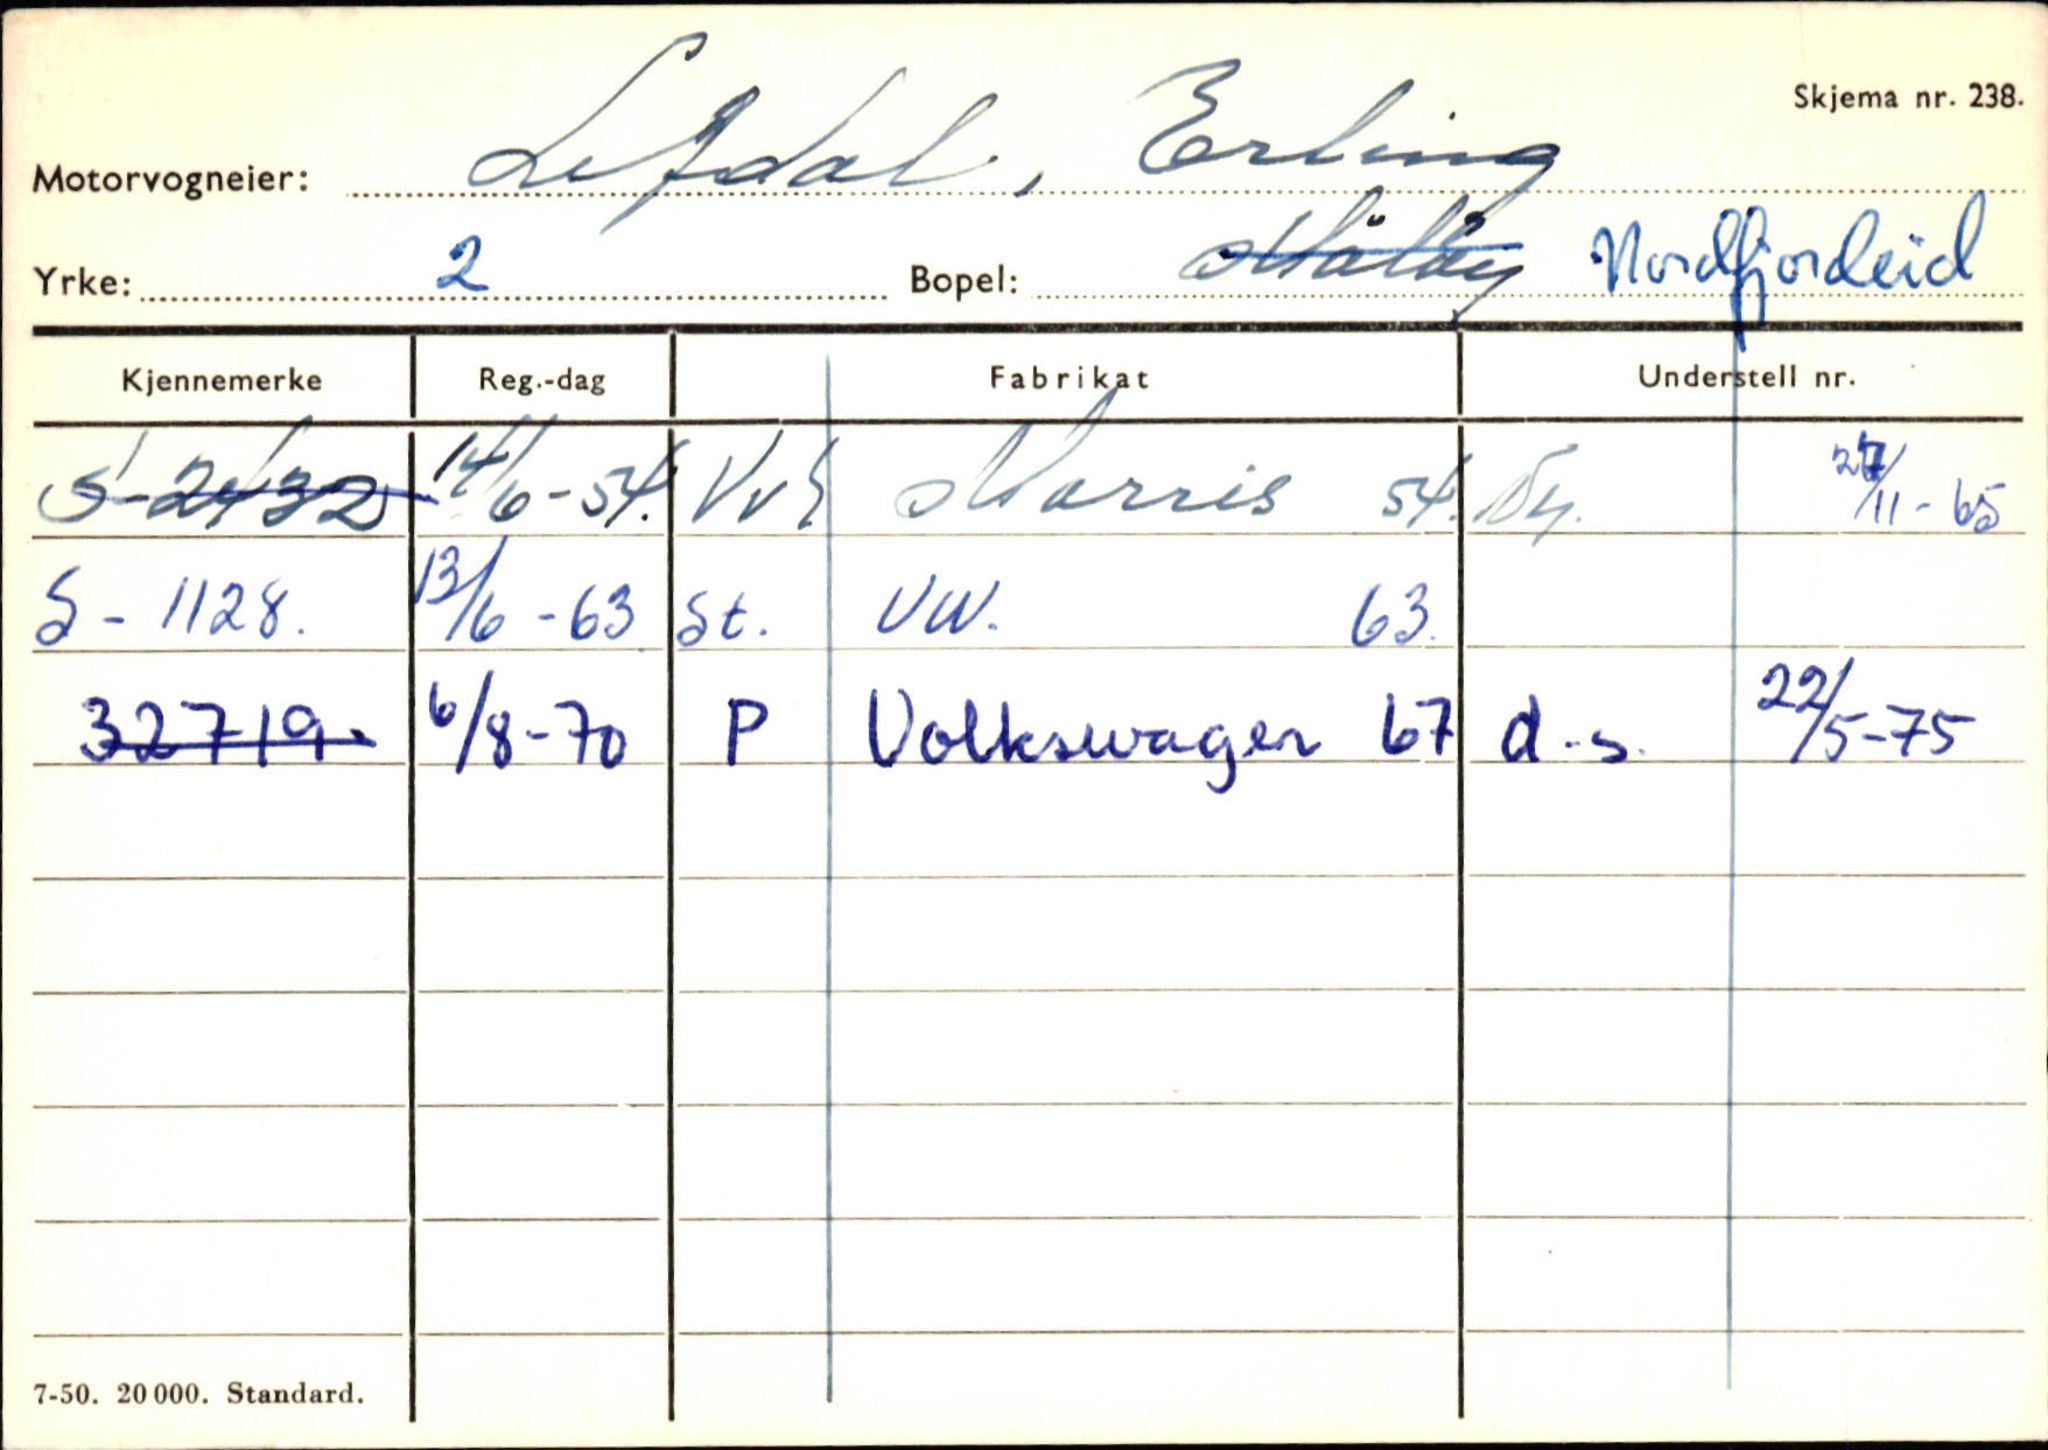 Skjema nr. 238.
Motorvogneier: Lefdal, Erling
Yrke: 2 Bopel: Måløy Nordfjordeid
Kjennemerke Reg.-dag Fabrikat Understell nr.
S-2432 14/6-54. Morris 54. Ny. 27/11-65
S-1128. 13/6-63 St. VW. 63.
32719. 6/8-70 P Volkswagen 67 d.s. 22/5-75
7-50. 20 000. Standard.